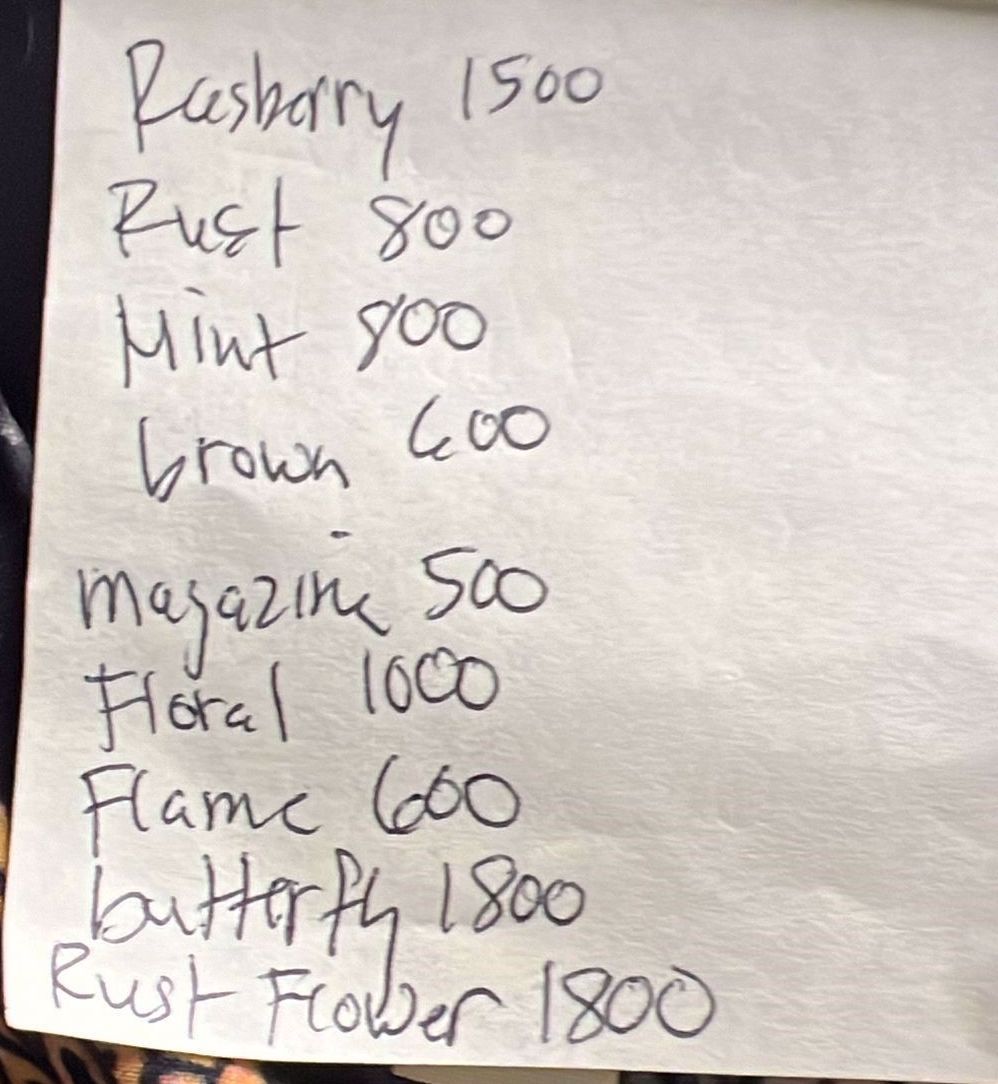 Rasberry 1500
Rust 800
Mint 800
brown 600
magazine 500
Floral 1000
Flame 600
butterfly 1800
Rust Flower 1800